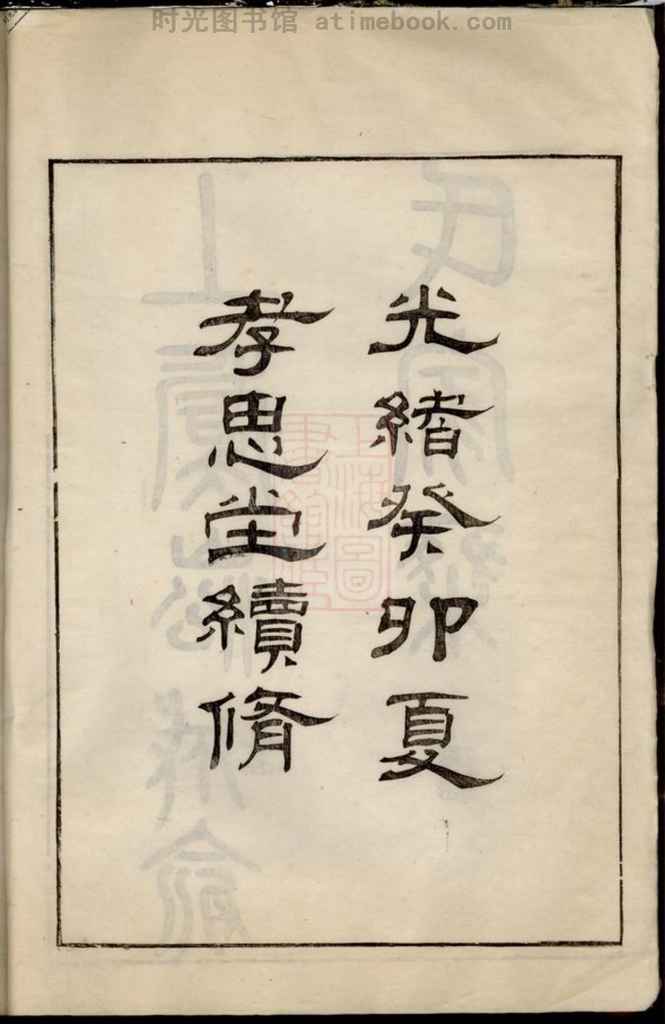 时光图书馆 atimebook.com
光緒癸卯夏
孝思堂續脩